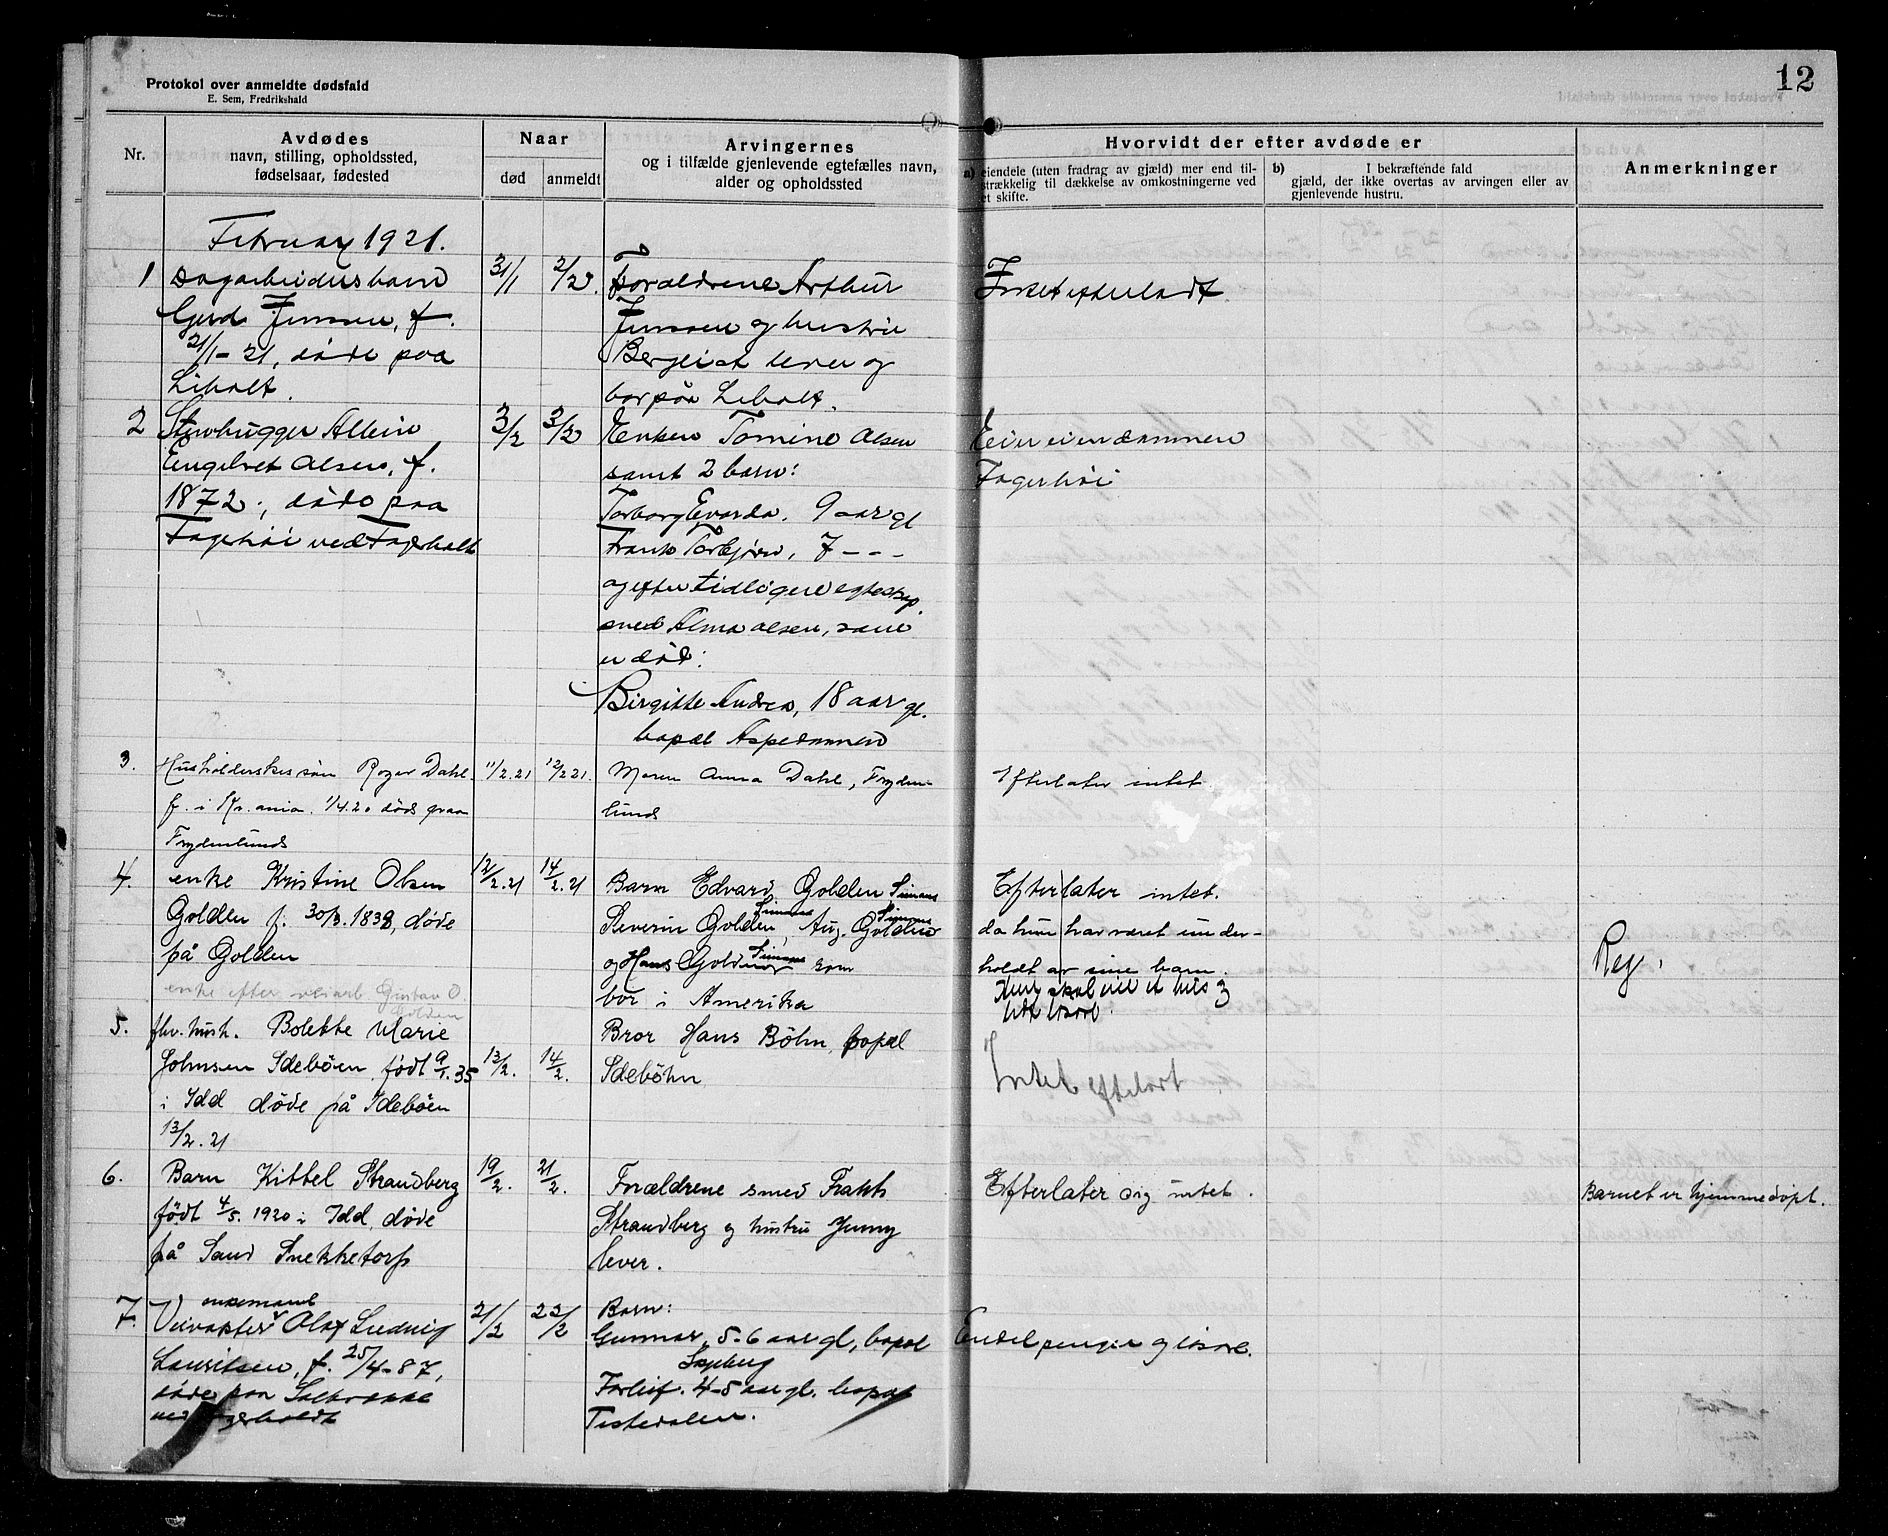 12
Protokol over anmeldte dødsfald
E. Sem, Fredrikshald
Nr.
Avdødes
navn, stilling, opholdssted,
fødselsaar, fødested
Naar
død
anmeldt
Arvingernes
og i tilfælde gjenlevende egtefælles navn,
alder og opholdssted
Hvorvidt der efter avdøde er
a) eiendele (uten fradrag av gjæld) mer end til-
strækkelig til dækkelse av omkostningerne ved
et skifte.
b) I bekræftende fald
gjæld, der ikke overtas av arvingen eller av
gjenlevende hustru.
Anmerkninger
Februar 1921.
1
Gerd Jensen, f.
21/1-21, døde paa
Liholt.
31/1
2/2.
Forældrene Arthur
Jensen og hustru
lever og
bor paa Liholt.
Intet efterladt.
2
Stenhugger
Engebret Olsen, f.
1872, døde paa
Fagerhøi ved Fagerholt
3/2
3/2
Enken Tomine Olsen
samt 2 barn:
Torborg Evarda, 9 aar gl
Frank Torbjørn, 7 - - -
og efter tidligere egteskap
med Alma Olsen, som
er død:
Birgitte Andrea, 18 aar gl.
bopæl Aspedammen
Eier eiendommen
Fagerhøi
3.
Husholderskes søn Roger Dahl.
f. i Kr.ania. 1/4.20 død paa
Frydenlund
11/2.21
12/2 21.
Maren Anna Dahl, Fryden-
lund
Efterlater intet.
4.
enke Kristine Olsen
Golden f. 30/3.1838, døde
på Golden
enke efter Gustav O.
Golden
12/2.21
14/2.21
Barn Edvard Golden Simens
Severin Golden Simens, Aug. Golden Simens
og Hans Golden Simens som
bor i Amerika
Efterlater intet.
da hun har været under-
holdt av sine barn.
Hun skal eie et hus og
litt løsøre.
Reg.
5.
fhv. hush. Bolette Marie
Johnsen Idebøen født 9/1.35
i Idd døde på Idebøen
13/2.21
13/2.
14/2.
Bror Hans Böhn, bopæl
Idebøhn
Intet efterlatt
6.
Barn Kittel Strandberg
født 4/5. 1920 i Idd døde
på Sand Snekketorp
19/2.
21/2.
Forældrene smed
Strandberg og hustru Jenny
lever.
Efterlater sig intet.
Barnet er hjemmedøpt.
7.
enkemand
Veivokter Olaf Ludvig
Lauritsen, f. 25/4-87,
døde paa
ved Fagerholdt
21/2
22/2
Barn:
Gunnar, 5-6 aar gl, bopæl
Torleif. 4-5 aar gl. bopæl
Tistedalen.
Endel penger og løsøre.